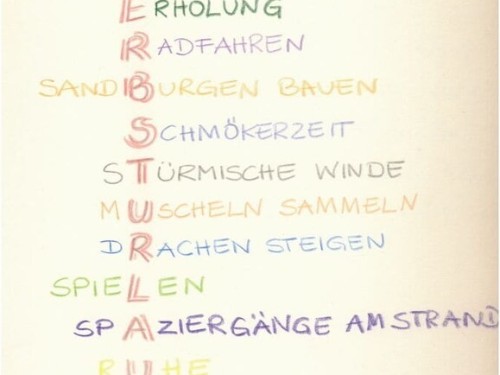 ERHOLUNG
RADFAHREN
SANDBURGEN BAUEN
SCHMÖKERZEIT
STÜRMISCHE WINDE
MUSCHELN SAMMELN
DRACHEN STEIGEN
SPIELEN
SPAZIERGÄNGE AM STRAND
RUHE